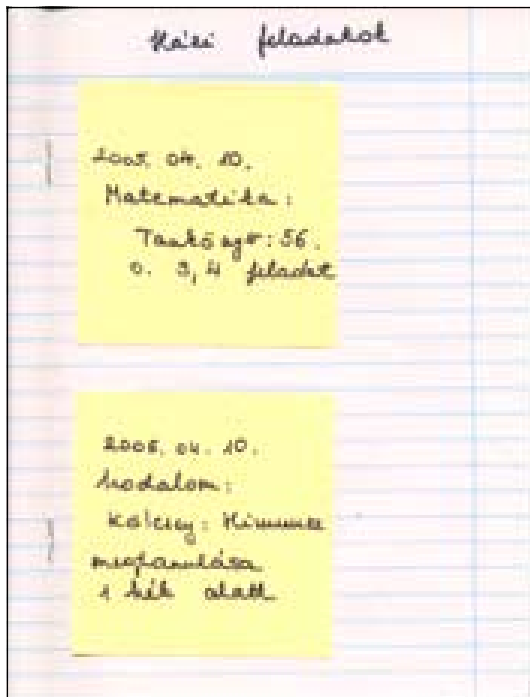 Házi feladatok
2005. 04. 10.
Matematika:
Tankönyv: 56.
o. 3, 4 feladat
2005. 04. 10.
Irodalom:
Kölcsey: Himnusz
megtanulása
1 hét alatt